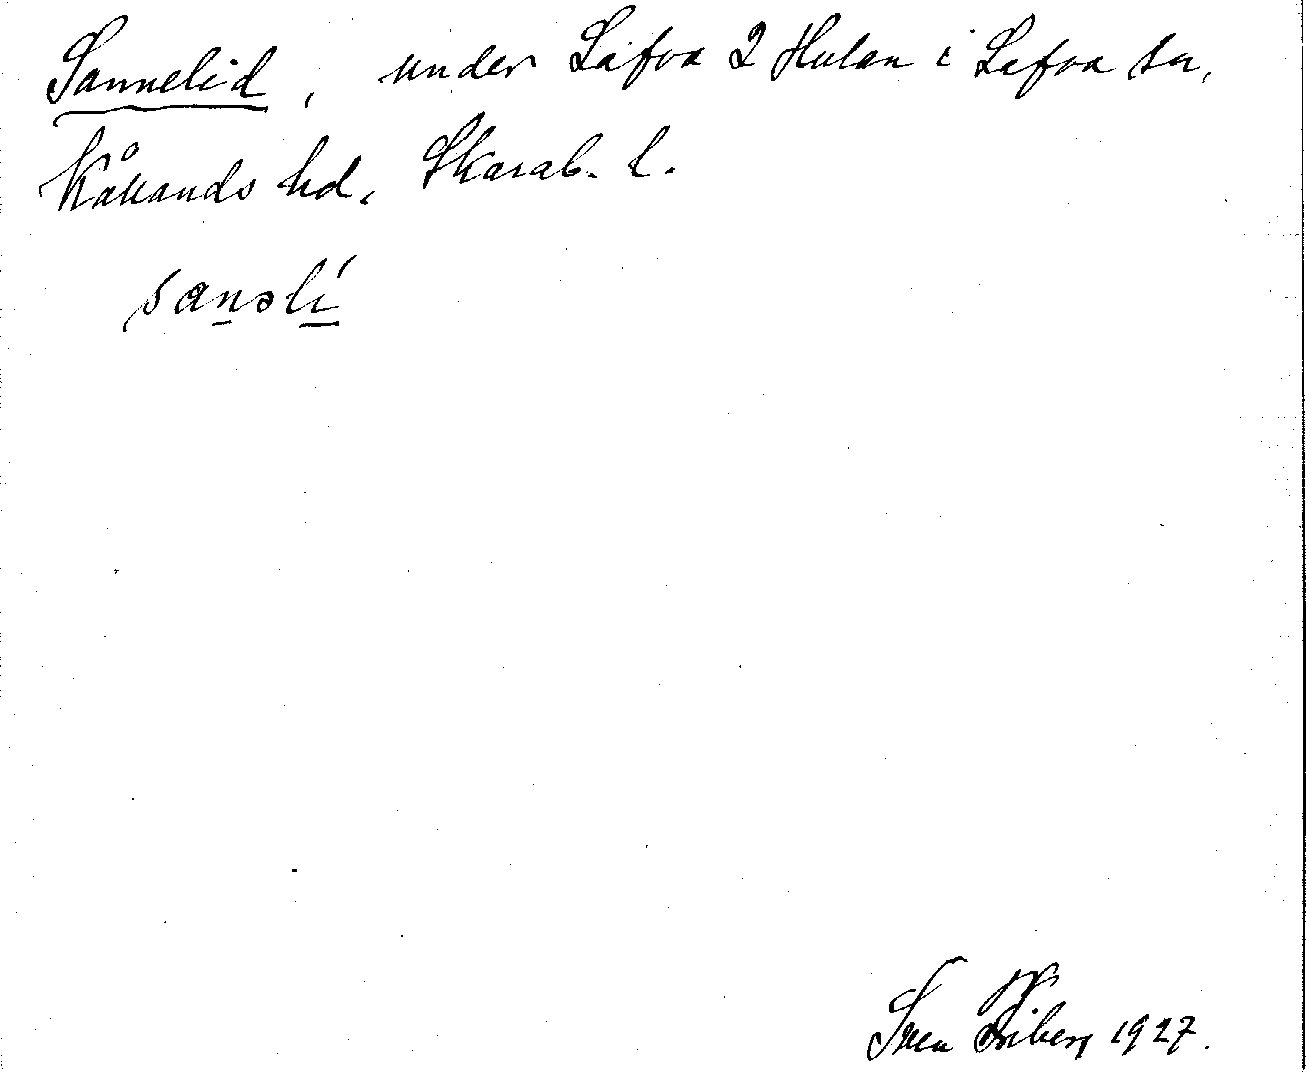 Sannelid, under Låfva 2 Hulan i Lefva sn,
Kåkands hd, Skarab. l.
sanəlí
Sven Friberg 1927.